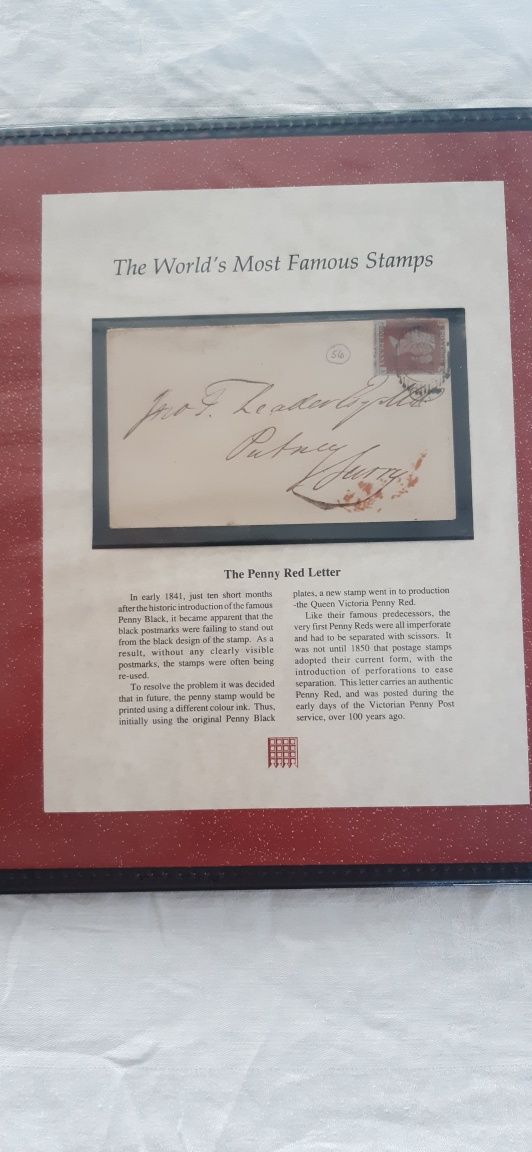 The World's Most Famous Stamps
56
Jno T. Leader Esqr
Putney
Surry
The Penny Red Letter
In early 1841, just ten short months
after the historic introduction of the famous
Penny Black, it became apparent that the
black postmarks were failing to stand out
from the black design of the stamp. As a
result, without any clearly visible
postmarks, the stamps were often being
re-used.
To resolve the problem it was decided
that in future, the penny stamp would be
printed using a different colour ink. Thus,
initially using the original Penny Black
plates, a new stamp went in to production
-the Queen Victoria Penny Red.
Like their famous predecessors, the
very first Penny Reds were all imperforate
and had to be separated with scissors. It
was not until 1850 that postage stamps
adopted their current form, with the
introduction of perforations to ease
separation. This letter carries an authentic
Penny Red, and was posted during the
early days of the Victorian Penny Post
service, over 100 years ago.